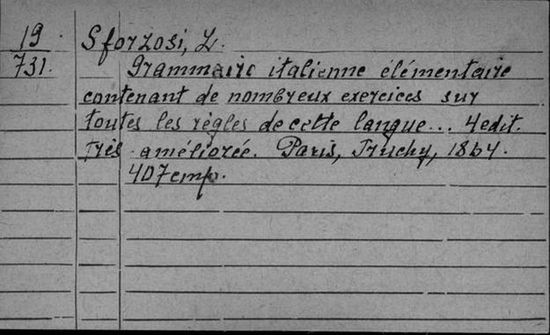 19
731.
Sforzosi, L.
Grammaire italienne élémentaire
contenant de nombreux exercices sur
toutes les règles de cette langue... 4edit.
très améliorée. Paris, Truchy, 1864.
407 cmp.